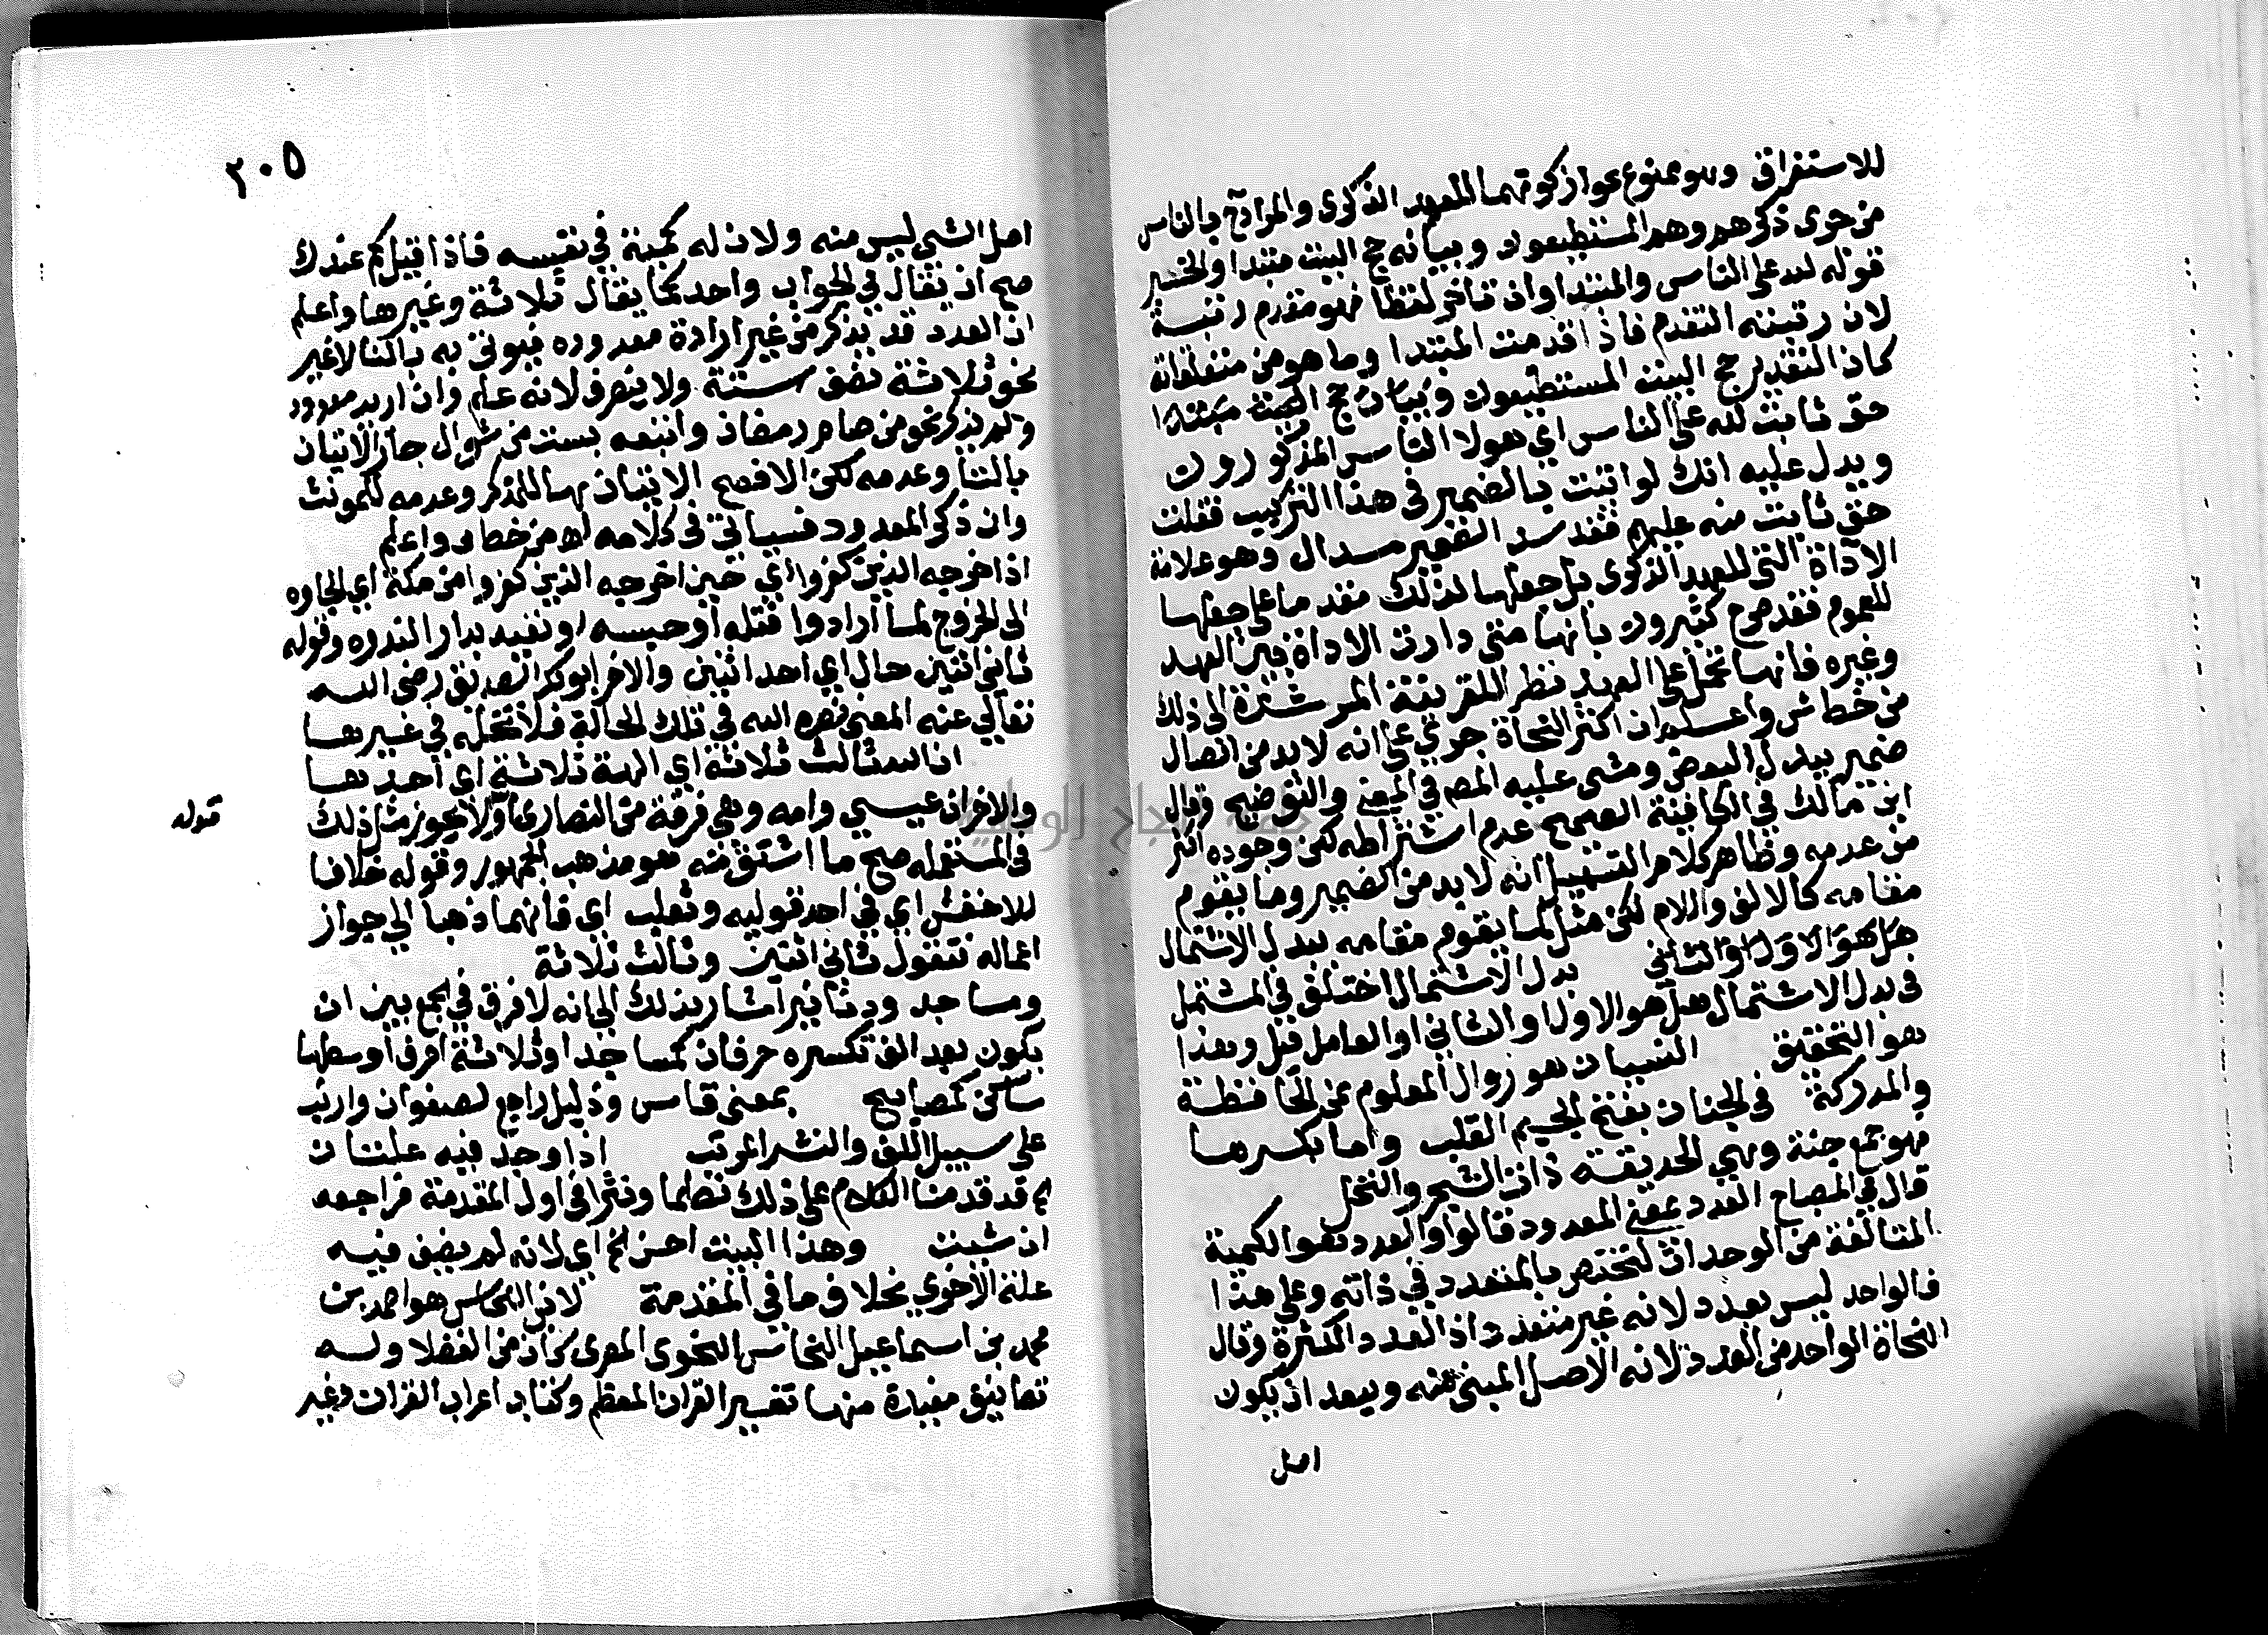 للاستغراق وهو ممنوع جواز كونهما للعهد الذكري والمراد ح بالناس
من جرى ذكرهم وهم المستطيعون وبيانه حج البيت مبتدا والخبر
قوله لله على الناس والمبتدا وان تاخر لفظا فهو مقدم رتبة
لان رتبته التقدم فاذا قدمت المبتدا وما هو من متعلقاته
كان التقدير حج البيت المستطيعون وبيان حج البيت مبتدا
حق ثابت لله على الناس اي هولا الناس المذكورون
ويدل عليه انك لو اتيت بالضمير في هذا التركيب فقلت
حق ثابت منه عليهم فقد سد الضمير مسد ال وهو علامة
الاداة التي للعهد الذكري بل جعلها لذلك مقدم على جعلها
للعموم فقد صرح كثيرون بانها متى دارت الاداة بين العهد
وغيره فانها تحمل على العهد نظرا للقرينة المرشدة الى ذلك
من خط ش واعلم ان اكثر النحاة جرى على انه لا بد من اتصال
ضمير ببدل البعض ومشى عليه المص في المغني والتوضيح وقال
ابن مالك في الكافية الصحيح عدم اشتراطه لكن وجوده اكثر
من عدمه وظاهر كلام التسهيل انه لا بد من الضمير وما يقوم
مقامه كالالف واللام لكن مثل لما يقوم مقامه ببدل الاشتمال
هل هو الاول او الثاني بدل الاشتمال اختلف في المشتمل
في بدل الاشتمال هل هو الاول او الثاني او العامل قيل وهذا
هو التحقيق النسيان هو زوال المعلوم عن الحافظة
والمدركة في الجنان بفتح الجيم القلب واما بكسرها
فهو جمع جنة وهي الحديقة ذات الشجر والنخل
قال في المصباح العدد بمعنى المعدود قالوا والعدد هو الكمية
المتالفة من الوحدات فتختص بالمتعدد في ذاته وعلى هذا
فالواحد ليس بعدد لانه غير متعدد اذ العدد الكثرة وقال
النحاة الواحد من العدد لانه الاصل المبني منه ويبعد ان يكون
اصل
٢٠٥
اصل الشي ليس منه ولان له كمية في نفسه فاذا قيل كم عندك
صح ان يقال في الجواب واحد كما يقال ثلاثة وغيرها واعلم
ان العدد قد يذكر من غير ارادة معدوده فيوتى به بالتا لا غير
نحو ثلاثة نصف ستة ولا ينصرف لانه علم وان اريد معدود
ولم يذكر نحو من صام رمضان واتبعه بست من شوال جاز الاتيان
بالتا وعدمه لكن الافصح الاتيان بها للمذكر وعدمه للمونث
وان ذكر المعدود فسياتي في كلامه اه من خط ش واعلم
اذ اخرجه الذين كفروا اي حين اخرجه الذين كفروا من مكة اي الجاوه
الى الخروج لما ارادوا قتله او حبسه او نفيه بدار الندوه وقوله
ثاني اثنين حال اي احد اثنين والاخر ابو بكر الصديق رضى الله
تعالى عنه المعنى نصره الله في تلك الحالة فلا تخله في غيرها
ان الله ثالث ثلاثة اي الهة ثلاثة اي احدها
والاخران عيسى وامه وهي فرقة من النصارى ولا يجوز مثل ذلك
قوله
في المستعمله صح ما اشتق منه هو مذهب الجمهور وقوله خلافا
للاخفش اي في احد قوليه وثعلب اي فانهما ذهبا الى جواز
اعماله فتقول ثاني اثنين وثالث ثلاثة
ومساجد ودنانير اشار بذلك الى انه لا فرق في الجمع بين ان
يكون بعد الف تكسيره حرفان كمساجد او ثلاثة احرف اوسطها
ساكن كمصابيح بمعنى قاس وذليل راجع لصفوان وارنب
على سبيل اللف والنشر المرتب اذا وجد فيه علتان
الخ قد قدمنا الكلام على ذلك نظما ونثرا في اول المقدمة فراجعه
ان شيت وهذا البيت احسن الخ اي لانه لم يضف فيه
علة الاخرى بخلاف ما في المقدمة لابن النحاس هو احمد بن
محمد بن اسماعيل النحاس النحوى المصرى كان من الفضلا وله
تصانيف مفيدة منها تفسير القران المعظم وكتاب اعراب القران وغير